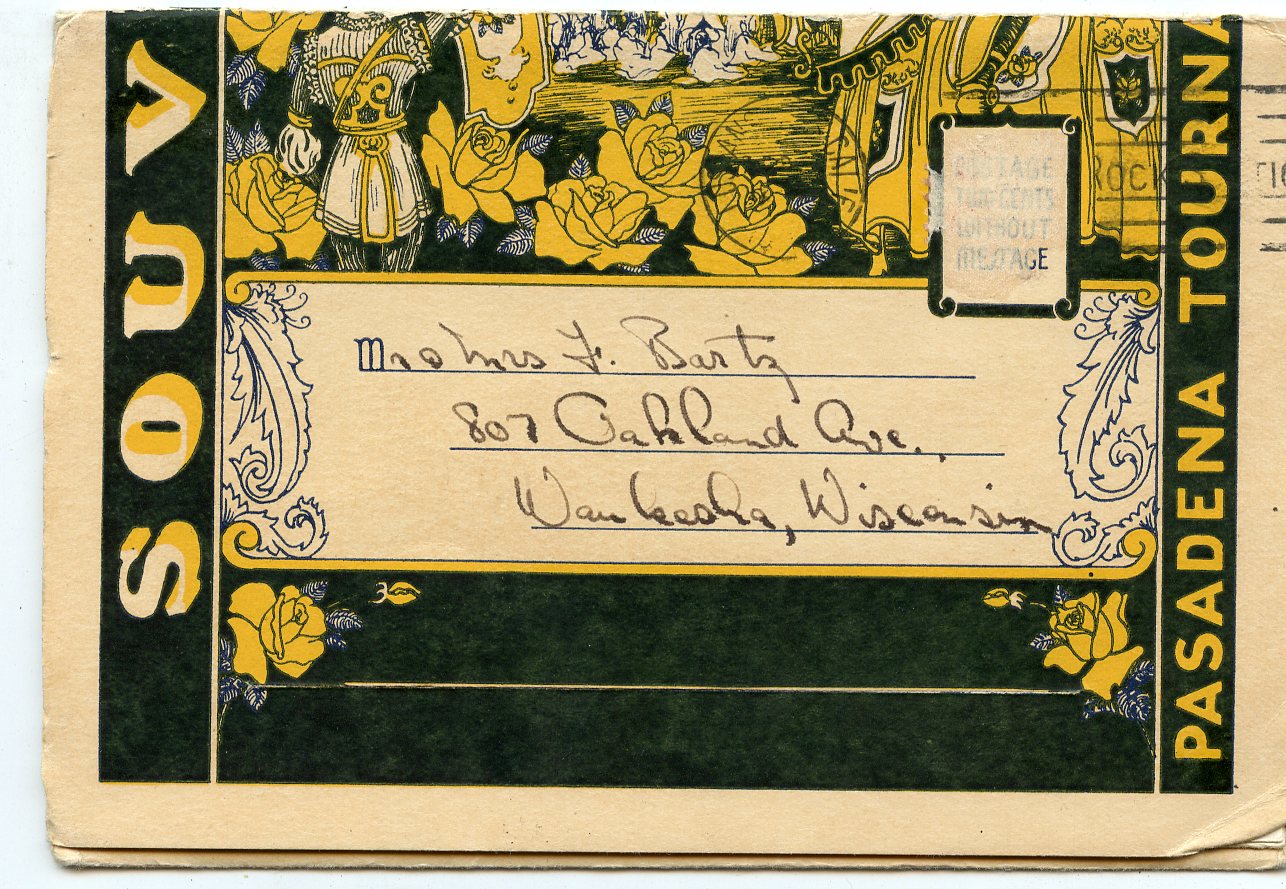 SOUV
PASADENA TOURNA
POSTAGE
TWO CENTS
WITHOUT
MESSAGE
ROCK
M r & Mrs F. Bartz
807 Oakland Ave.,
Waukesha, Wisconsin